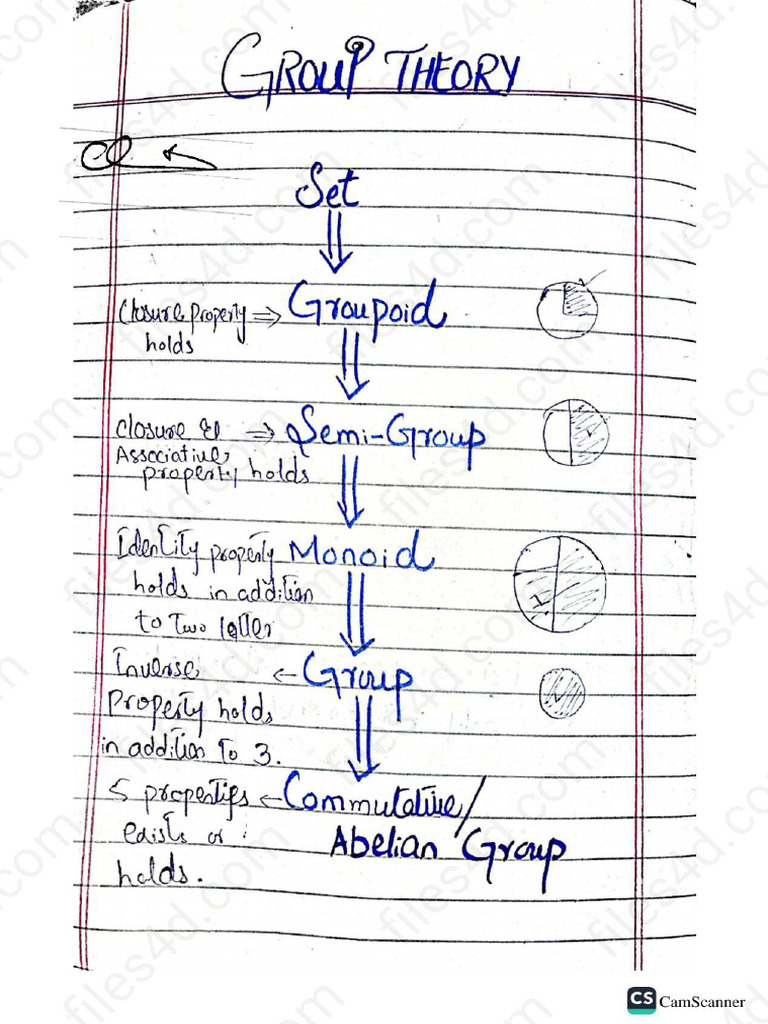 GROUP THEORY
Set
Closure property ⇒ Groupoid
holds
closure & ⇒ Semi-Group
Associative
property holds
Identity property Monoid
holds in addition
to Two latter
Inverse ← Group
Property holds
in addition to 3.
5 properties ← Commutative/
exists or : Abelian Group
holds.
CS CamScanner
files4d.com